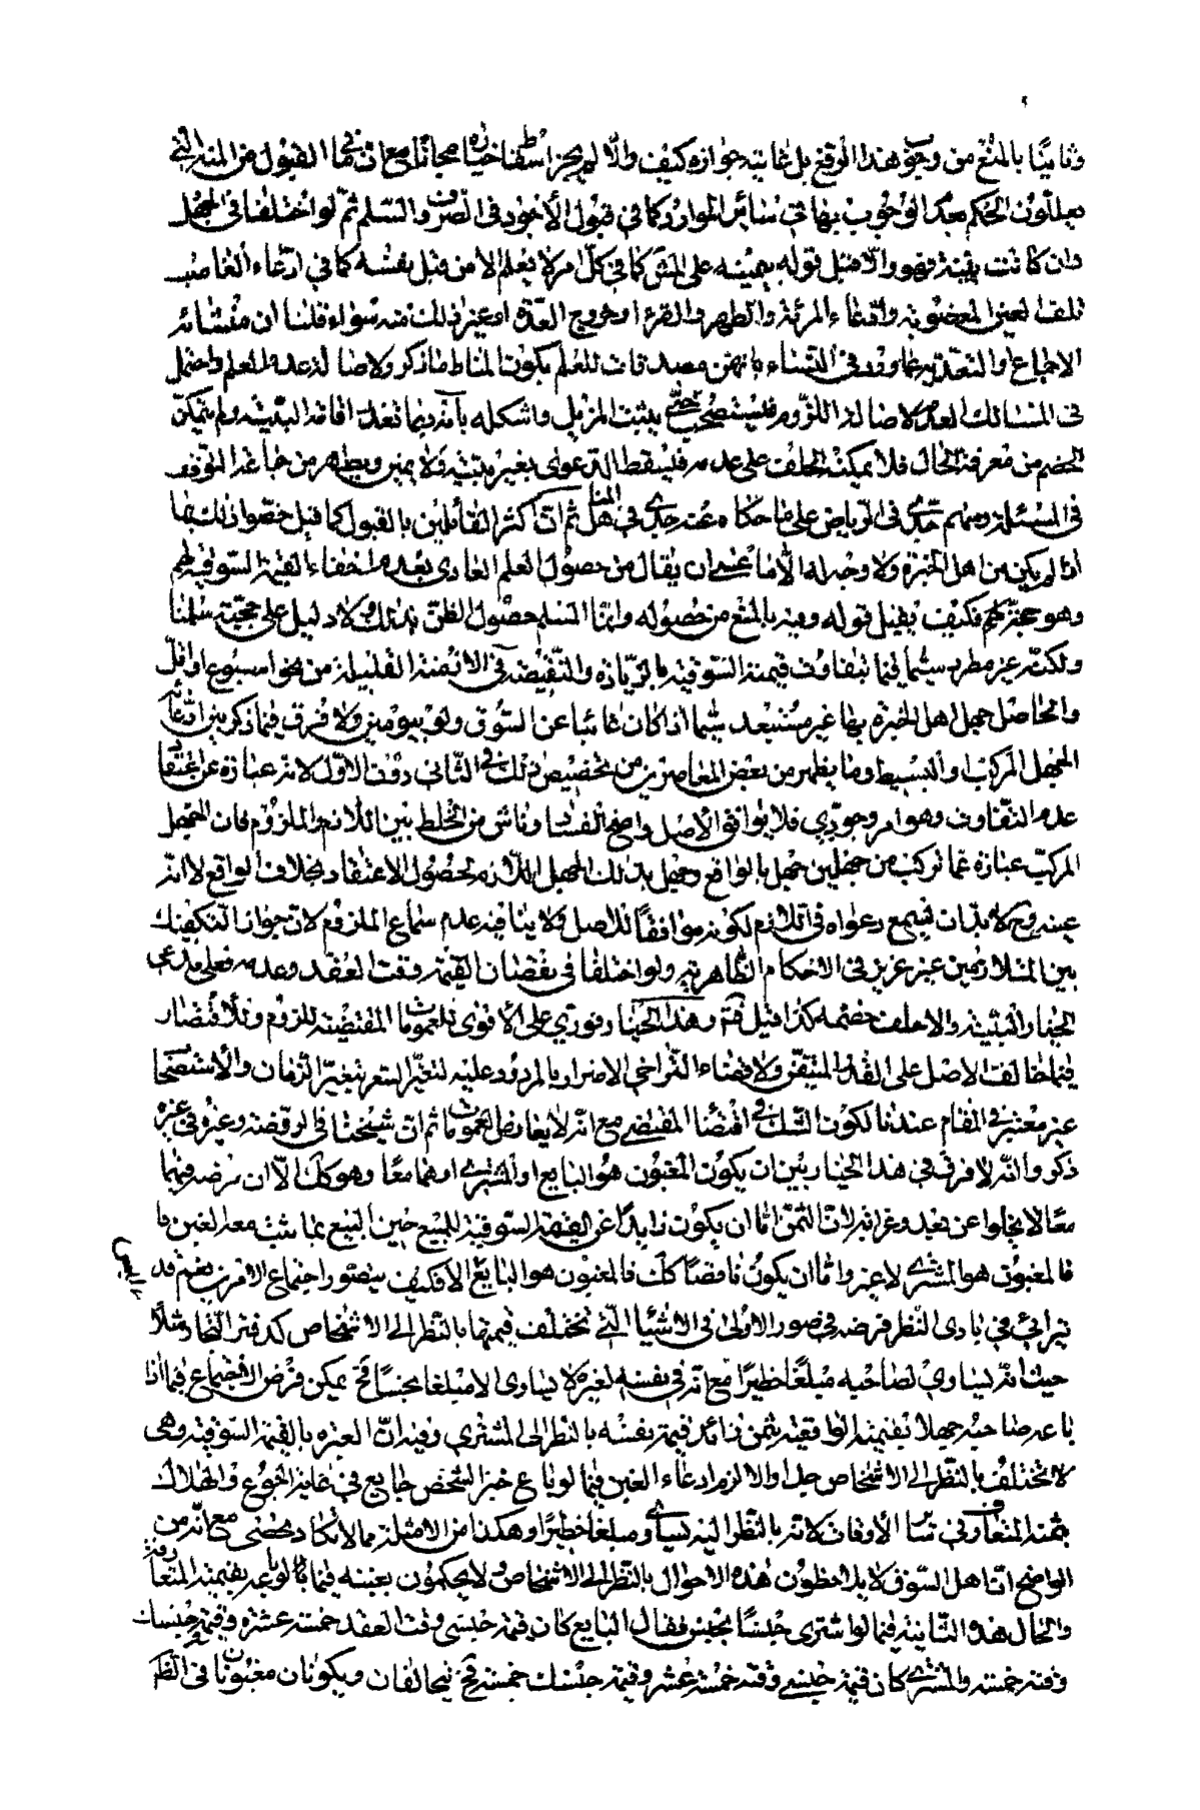 وثانيًا بالمنع من وجوب هذا الوقع بل غايته جوازه كيف والّا لم يجز اسقاط خياره مجانًا مع ان في ما القبول من المنة التي
يعللون الحكم بعد الوجوب بها في سائر الموارد كما في قبول الأجود في الصرف والسلم ثم لو اختلفا في الجهل
فان كانت بيّنة فهو والّا قبل قوله بيمينه على المش كما في كلّ امر لا يعلم الا من قبل نفسه كما في ادّعاء الغاصب
تلف العين المغصوبة وادّعاء المرئة والطهر والقرء وخروج العدّة او غير ذلك منه سواء قلنا ان منشائه
الاجماع او التعدّي عما ورد في النساء بانهن مصدقات للعلم بكون المناط ما ذكر ولاصالة عدم العلم واحتمل
في المسالك العدم لاصالة اللزوم فليستصحب حتّى يثبت المزيل واشكله بانه ربما تعذّر اقامة البيّنة ولم يتمكّن
الخصم من معرفة الحال فلا يمكنه الحلف على عدمه فليسقط الدعوى بغير بيّنة ولا يمين ويظهر من جماعة التوقف
في المسئلة ومنهم جدّي في الرياض على ما حكاه عنه جدّي في المناهل ثم ان اكثر القائلين بالقبول كما قيل خصّوا ذلك بما
اذا لم يكن من اهل الخبرة ولا وجه له الّا ما عسى ان يقال من حصول العلم العادي بعدم اختفاء القيمة السوقية لهم
وهو حجة لهم فكيف يقبل قوله وفيه بالمنع من حصوله وانما المسلم حصول الظن بذلك ولا دليل على حجيّته سلمنا
ولكنّه غير مطرد سيّما فيما تتفاوت قيمته السوقية بالزيادة والنقيصة في الازمنة القليلة من نحو اسبوع او اقلّ
والحاصل جهل اهل الخبرة بها غير مستبعد سيّما اذا كان غائبا عن السوق ولو بيومين ولا فرق فيما ذكر بين ادّعائه
الجهل المركب والبسيط وما يظهر من بعض المعاصرين من تخصيص ذلك في الثاني دون الاوّل لانه عبارة عن اعتقاد
عدم التفاوت وهو امر وجودي فلا يوافق الاصل واضح الفساد وناش من الخلط بين اللازم والملزوم فان الجهل
المركّب عبارة عما تركّب من جهلين جهل بالواقع وجهل بذلك الجهل اللازم لحصول الاعتقاد بخلاف الواقع لا انه
عينه وح لا بد ان يسمع دعواه في اللازم لكونه موافقًا للاصل ولا ينافيه عدم سماع الملزوم لان جواز التفكيك
بين المتلازمين غير عزيز في الاحكام الظاهرية ولو اختلفا في نقصان القيمة وقت العقد وعدمه فعلى مدعي
الخيار البينة والا حلف خصمه كذا قيل فت وهذا الخيار فوري على الأقوى للعمومات المقتضية للزوم وللاقتصار
فيما خالف الاصل على القدر المتيقن ولاقتضاء التراخي الاضرار بالمردود عليه لتغيّر السعر بتغيّر الزمان والاستصحاب
غير معتبر في المقام عندنا لكون الشك في اقتضاء المقتضي مع انه لا يعارض العمومات ثم ان شيخنا في الروضة وغيره في غيره
ذكروا انّه لا فرق في هذا الخيار بين ان يكون المغبون هو البايع او المشتري او هما معًا وهو كذلك الّا ان فرضه فيهما
معًا لا يخلوا عن بعد وغرابة لان الثمن امّا ان يكون زايدًا عن القيمة السوقية للمبيع حين البيع بما يثبت معه الغبن
فالمغبون هو المشتري لا غير واما ان يكون ناقصًا كك فالمغبون هو البايع لا غير فكيف يتصور اجتماع الامرين نعم قد
يترائى في بادى النظر فرضه في صور الاولى في الاشياء التي تختلف قيمتها بالنظر الى الاشخاص كدفتر التجار مثلًا
حيث انه يساوي لصاحبه مبلغًا خطيرًا مع انه في نفسه لغيره لا يساوى الا مبلغا بخسًا فح يمكن فرض الاجتماع فيما اذا
باعه صاحبه جهلا بقيمته الواقعية بثمن زائد قيمة نفسه بالنظر الى المشتري وفيه انّ العبرة بالقيمة السوقية وهي
لا تختلف بالنظر الى الاشخاص جدا والا لزم ادعاء الغبن فيما لو باع خبز الشخص جايع في غاية الجوع والهلاك
بثمنه المتعارف في سائر الأوقات لانه بالنظر اليه يساوي مبلغا خطيرًا وهكذا من الامثلة مما لا تكاد تحصى مع انّه من
الواضح ان اهل السوق لا يلاحظون هذه الاحوال بالنظر الى الاشخاص ولا يحكمون بغبنه فيما اذا لو باعه بقيمته المتعارفة
والحال هذه الثانية فيما لو اشترى جنسًا بجنس فقال البايع كان قيمة جنسي وقت العقد خمسة عشرة وقيمة جنسك
وقته خمسة والمشتري كان قيمة جنسي وقته خمسة عشر وقيمة جنسك خمسة فح يتحالفان ويكونان مغبونان في الظاهر